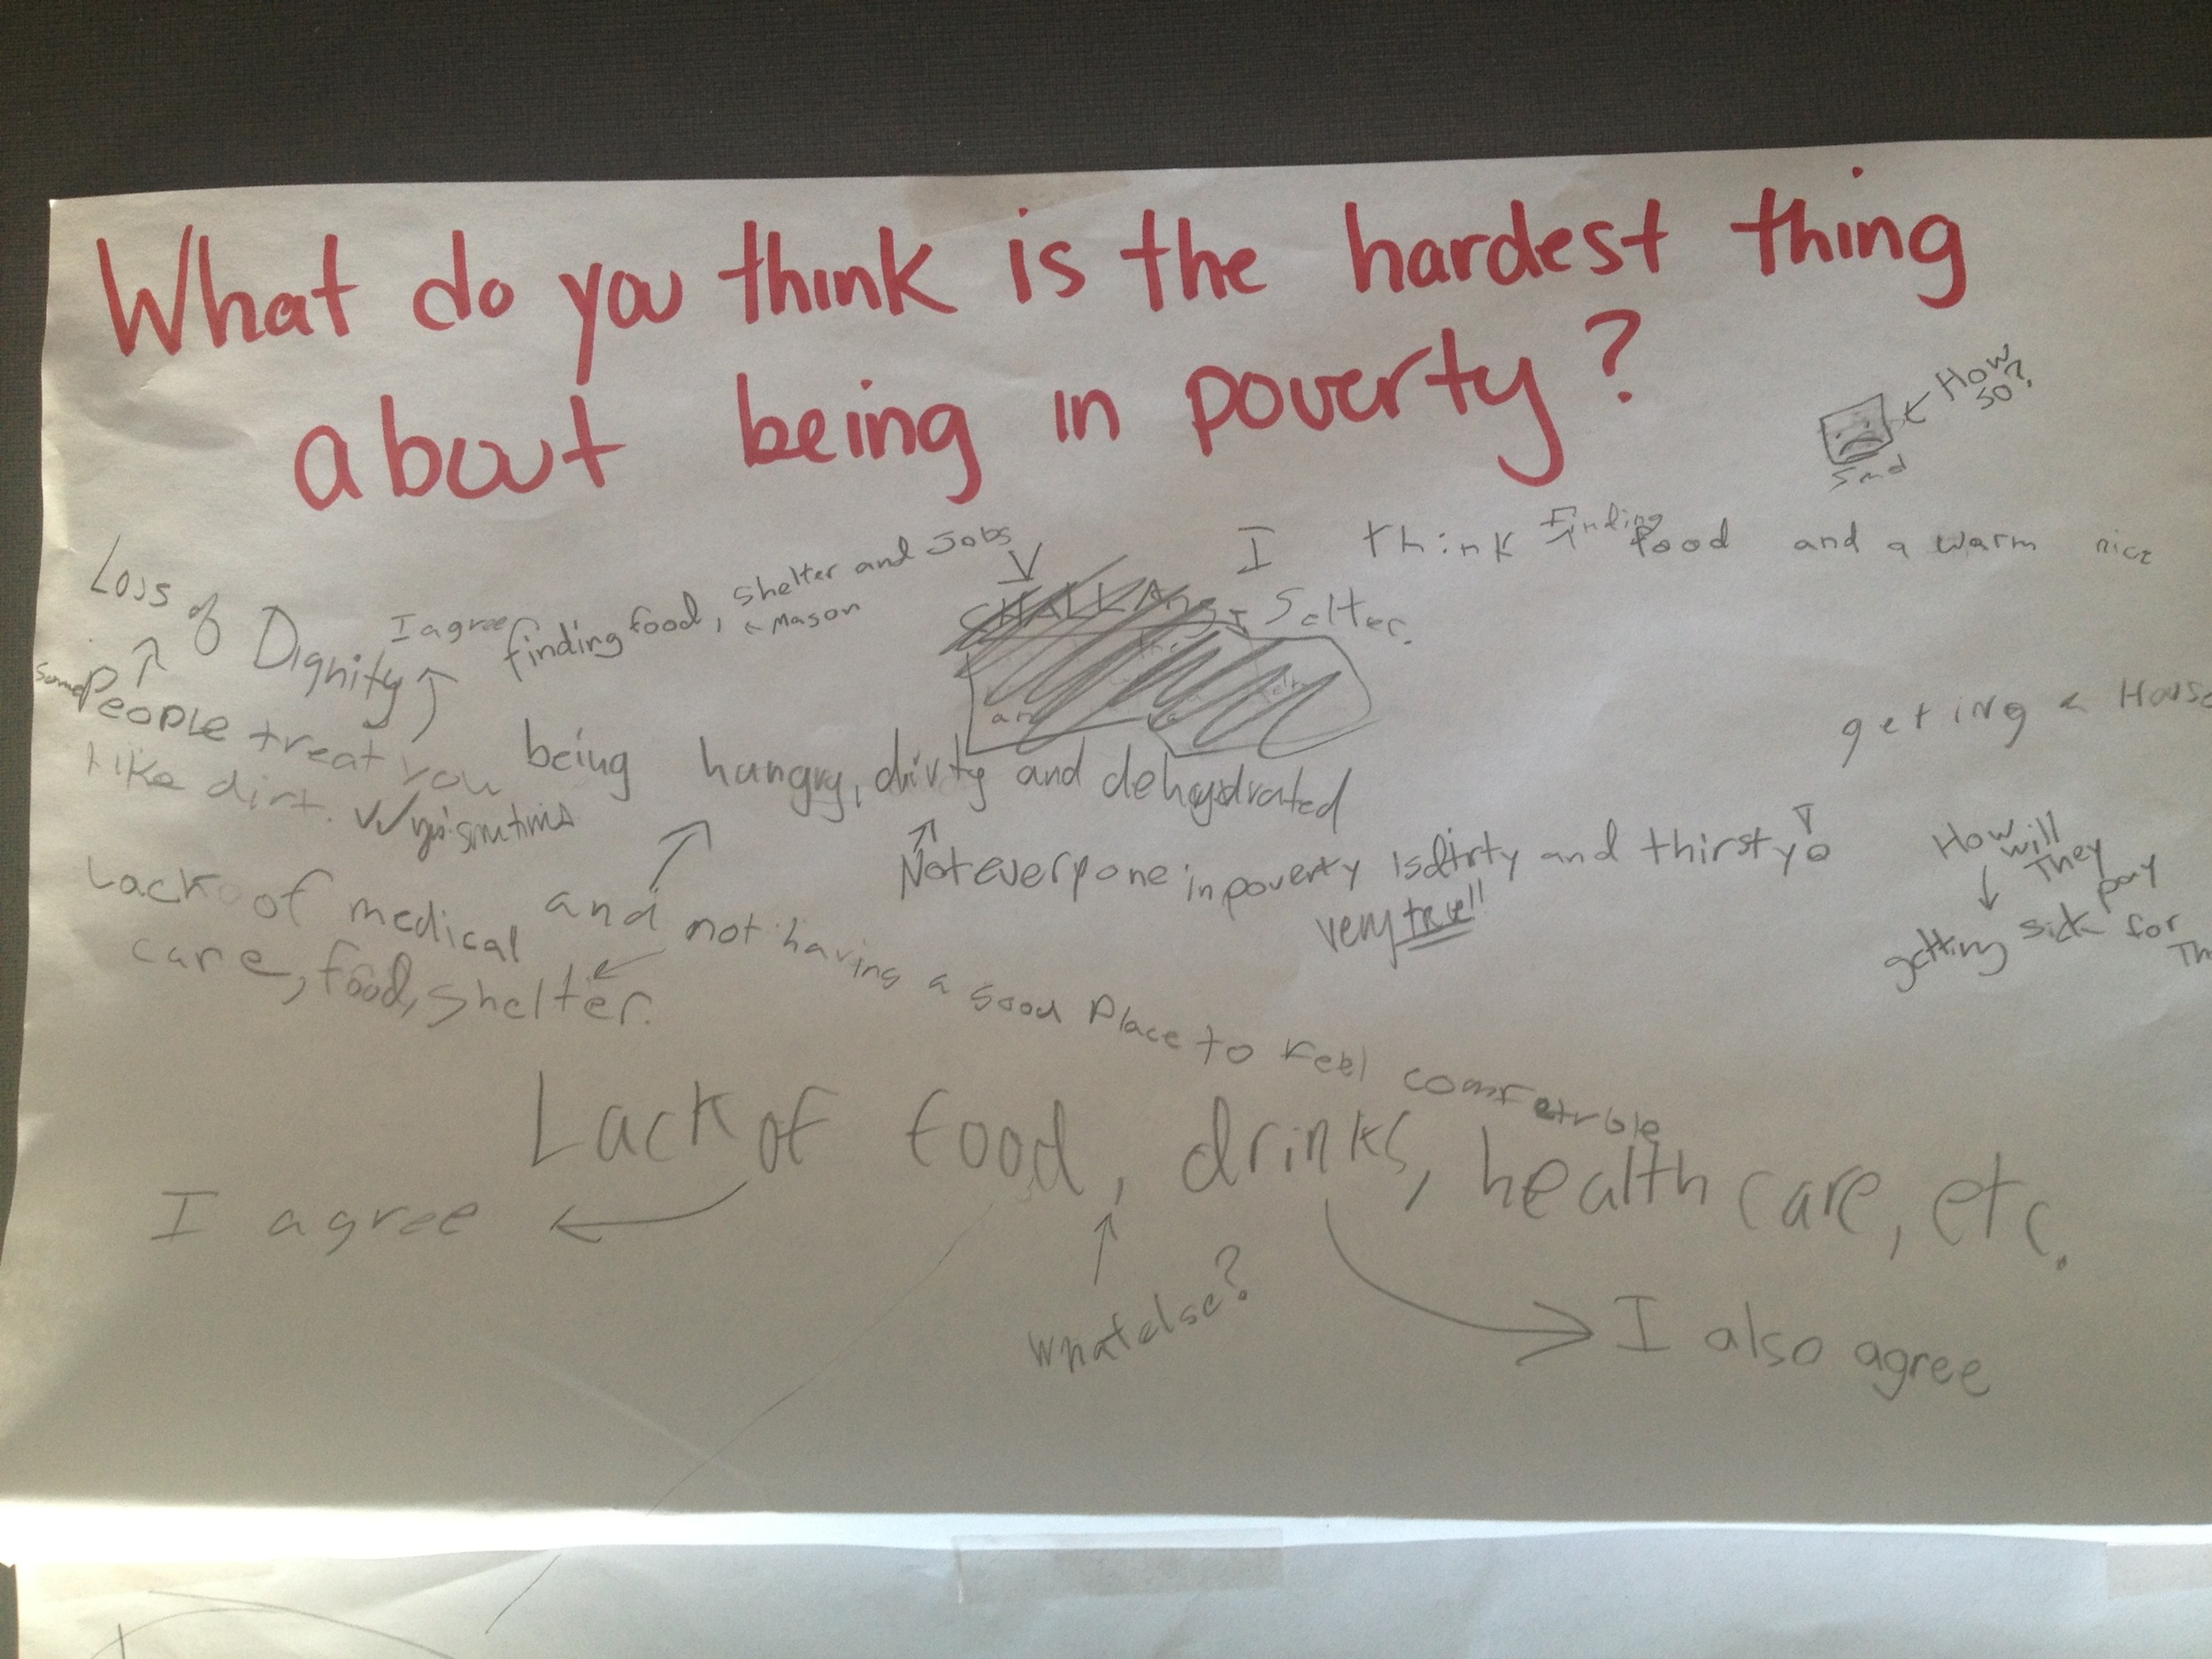 What do you think is the hardest thing
about being in poverty?
How
so?
Loss of Dignity
I agree
finding food, shelter and Jobs
← Mason
I think Finding food and a warm nice
Selter.
some People treat you
like dirt.
being hungry, dirty and dehydrated
geting a House
Not everyone in poverty is dirty and thirsty
very true!!
How will
They
pay
for
getting sick
Lack of medical
care, food, shelter.
and not having a good Place to Feel
Lack of food, drinks, health care, etc.
I agree
What else?
I also agree